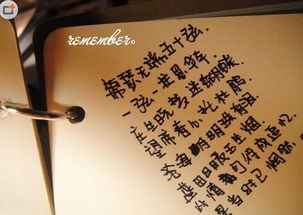 remember。
锦瑟无端五十弦，
一弦一柱思华年。
庄生晓梦迷蝴蝶
望帝春心托杜鹃
沧海月明珠有泪
蓝田日暖玉生烟
此情可待成追忆
只是当时已惘然